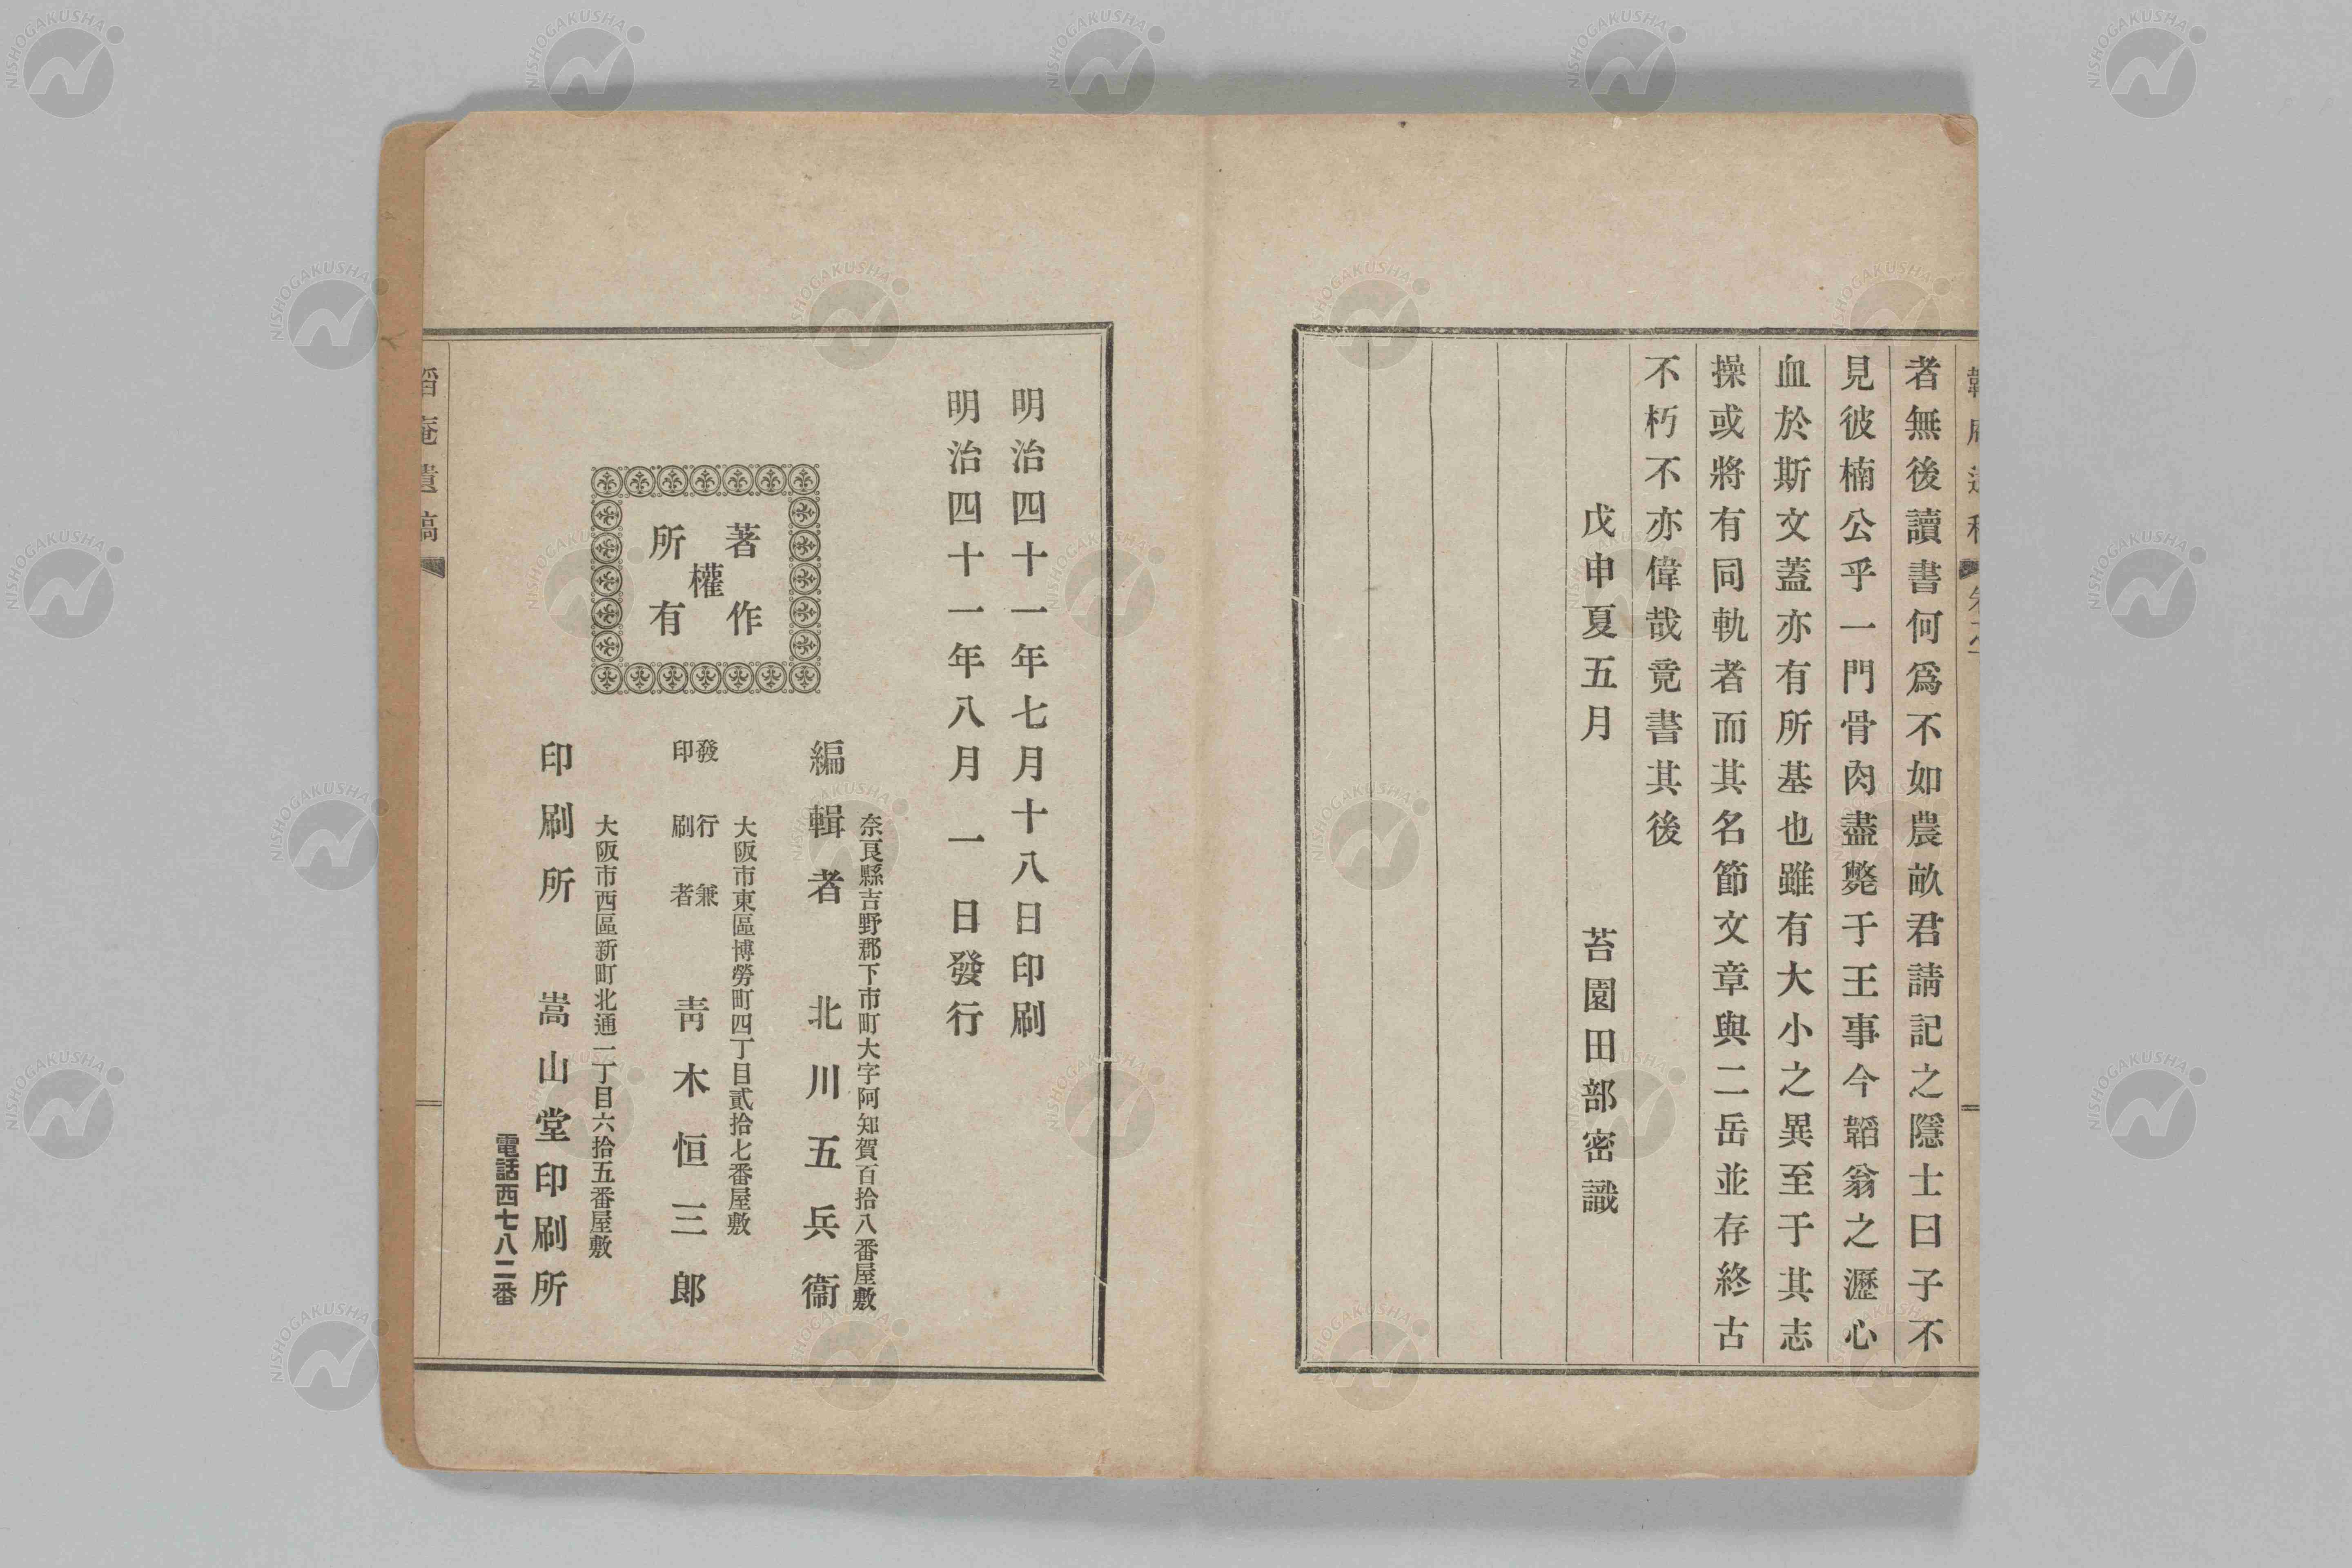 者無後讀書何爲不如農畝君請記之隱士曰子不
見彼楠公乎一門骨肉盡斃于王事今韜翁之瀝心
血於斯文蓋亦有所基也雖有大小之異至于其志
操或將有同軌者而其名節文章與二岳並存終古
不朽不亦偉哉竟書其後
戊申夏五月　苔園田部密識
明治四十一年七月十八日印刷
明治四十一年八月一日發行
著作權所有
奈良縣吉野郡下市町大字阿知賀百拾八番屋敷
編輯者　北川五兵衞
大阪市東區博勞町四丁目貳拾七番屋敷
發行兼印刷者　靑木恒三郎
大阪市西區新町北通一丁目六拾五番屋敷
印刷所　嵩山堂印刷所
電話西七八二番
韜庵遺稿
NISHOGAKUSHA